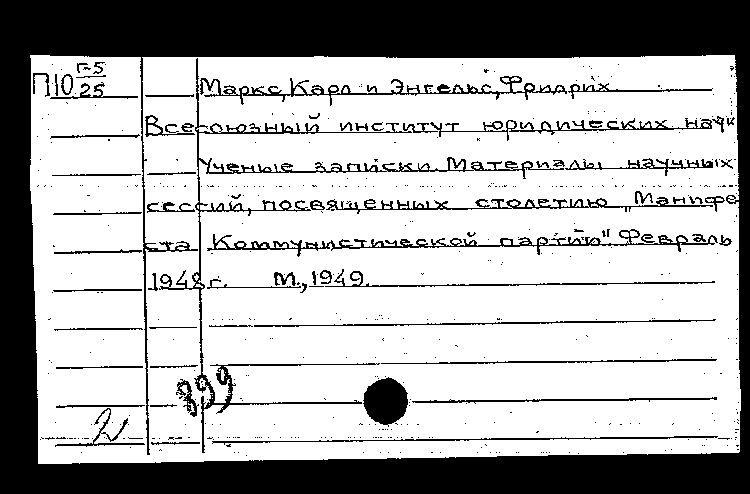 П10 Г-5/25
Маркс, Карл и Энгельс, Фридрих.
Всесоюзный институт юридических наук
Ученые записки. Материалы научных
сессий, посвященных столетию „Манифе
ста Коммунистической партии" Февраль
1948 г. М., 1949.
899
2